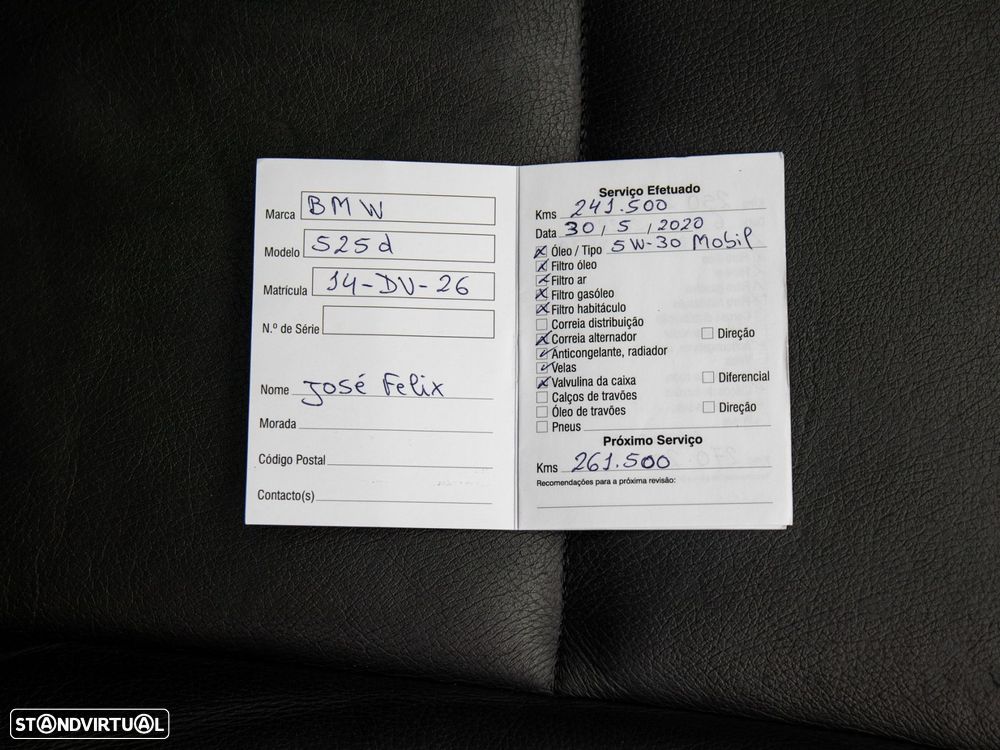 Marca BMW
Modelo 525d
Matrícula 14-DV-26
N.º de Série
Nome José Felix
Morada
Código Postal
Contacto(s)
Serviço Efetuado
Kms 241.500
Data 30 / 5 / 2020
Óleo / Tipo 5W-30 Mobil
Filtro óleo
Filtro ar
Filtro gasóleo
Filtro habitáculo
Correia distribuição
Correia alternador Direção
Anticongelante, radiador
Velas
Valvulina da caixa Diferencial
Calços de travões
Óleo de travões Direção
Pneus
Próximo Serviço
Kms 261.500
Recomendações para a próxima revisão:
STANDVIRTUAL